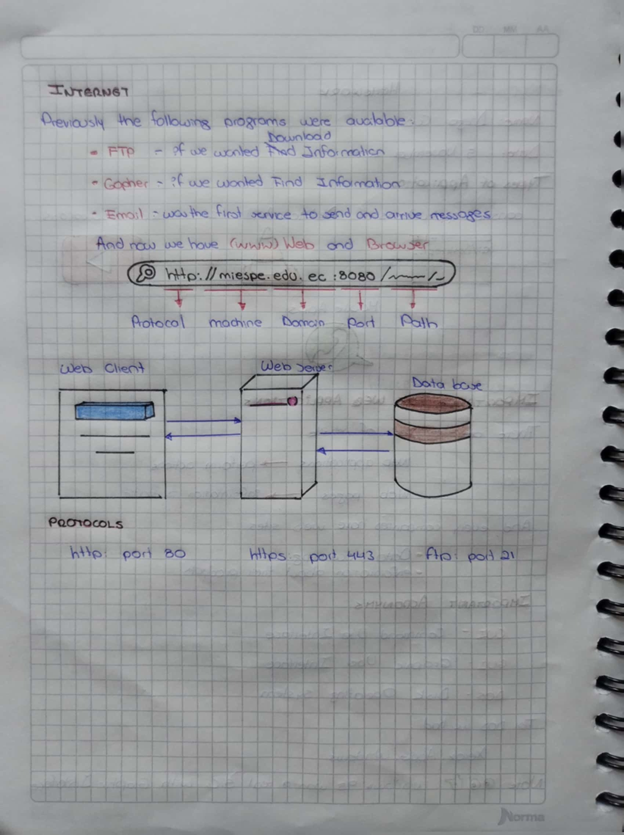 INTERNET
Previously the following programs were available:
Download
- FTP - if we wanted Find Information
- Gopher - if we wanted Find Information
- Email - was the first service to send and arrive messages
And now we have (www) Web and Browser
http://miespe.edu.ec:8080/
Protocol machine Domain Port Path
Web Client Web Server Data base
PROTOCOLS
http: port 80 https port 443 ftp: port 21
Norma